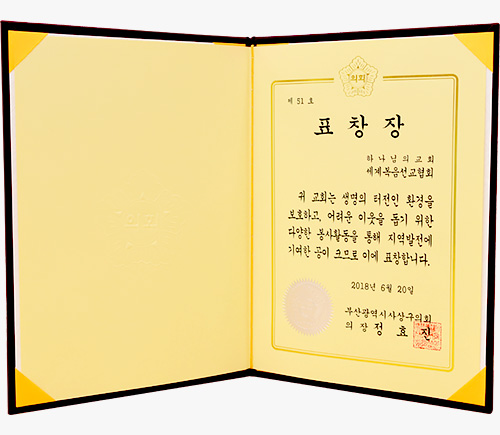 의회
제 51 호
표 창 장
하나님의교회
세계복음선교협회
귀 교회는 생명의 터전인 환경을
보호하고, 어려운 이웃을 돕기 위한
다양한 봉사활동을 통해 지역발전에
기여한 공이 크므로 이에 표창합니다.
2018년 6월 20일
부산광역시사상구의회
의 장 정 효 진